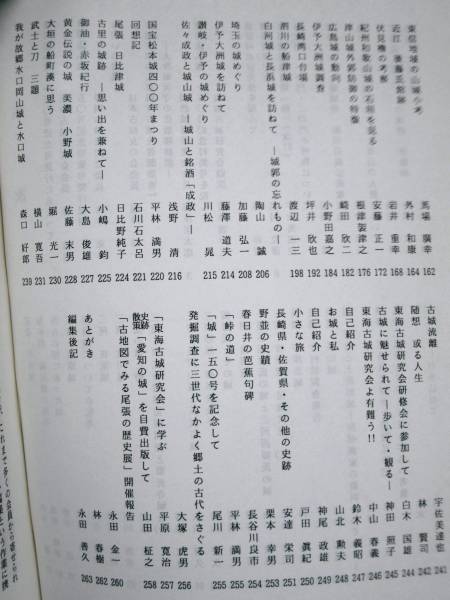 東信地域の山城小考 馬場廣幸 162
近江 後藤氏館跡 外村和康 164
伏見櫓の考察 若井重幸 168
紀州和歌山城の石垣を見る 安藤正一 172
津山城外郭防御の特徴 根津袈津之 176
広島城の動向 﨑田欣二 182
伊予大洲城調査 小野田嘉之 184
長崎湾口台場 坪井欣也 192
酒川の船津城 渡辺一三 198
白河城と長浜城を訪ねて ―城郭の忘れもの― 陶山誠 206
埼玉の城めぐり 加藤弘一 208
伊予大洲城を訪ねて 藤澤道夫 214
讃岐・伊予の城めぐり 川松晃 215
佐々成政と城山城 ―城山と銘酒「成政」― 浅野清 216
国宝松本城四〇〇年まつり 平林満男 220
回想記 石川石太呂 221
尾張 日比津城 日比野純子 224
古里の城跡 ―思い出を兼ねて― 小嶋鈞 225
御油・赤坂紀行 大島俊雄 227
黄金伝説の城 美濃 小野城 佐藤末男 228
大垣の船町湊に思う 堀光一 230
武士と刀 三題 横山寛吾 231
我が故郷水口岡山城と水口城 森口好郎 239
古城流離 宇佐美達也 241
随想 或る人生 林賢司 242
東海古城研究会研修会に参加して 白木国雄 244
古城に魅せられて―歩いて・観る― 神田照子 245
東海古城研究会よ有難う!! 中山春義 246
自己紹介 鈴木義昭 247
お城と私 山北勲夫 248
自己紹介 神尾政雄 249
小さな旅 戸田眞紀 250
長崎県・佐賀県・その他の史跡 安達栄司 251
野並の史蹟 栗本幸男 253
春日井の芭蕉句碑 長谷川良市 254
「峠の道」 平林満男 255
「城」一五〇号を記念して 尾川新一 255
発掘調査に三世代なかよく郷土の古代をさぐる 大塚虎男 256
「東海古城研究会」に学ぶ 平原寛治 257
史跡散策「愛知の城」を自費出版して 山田柾之 258
「古地図でみる尾張の歴史展」開催報告 永田金一 260
あとがき 林春樹 262
編集後記 永田善久 263